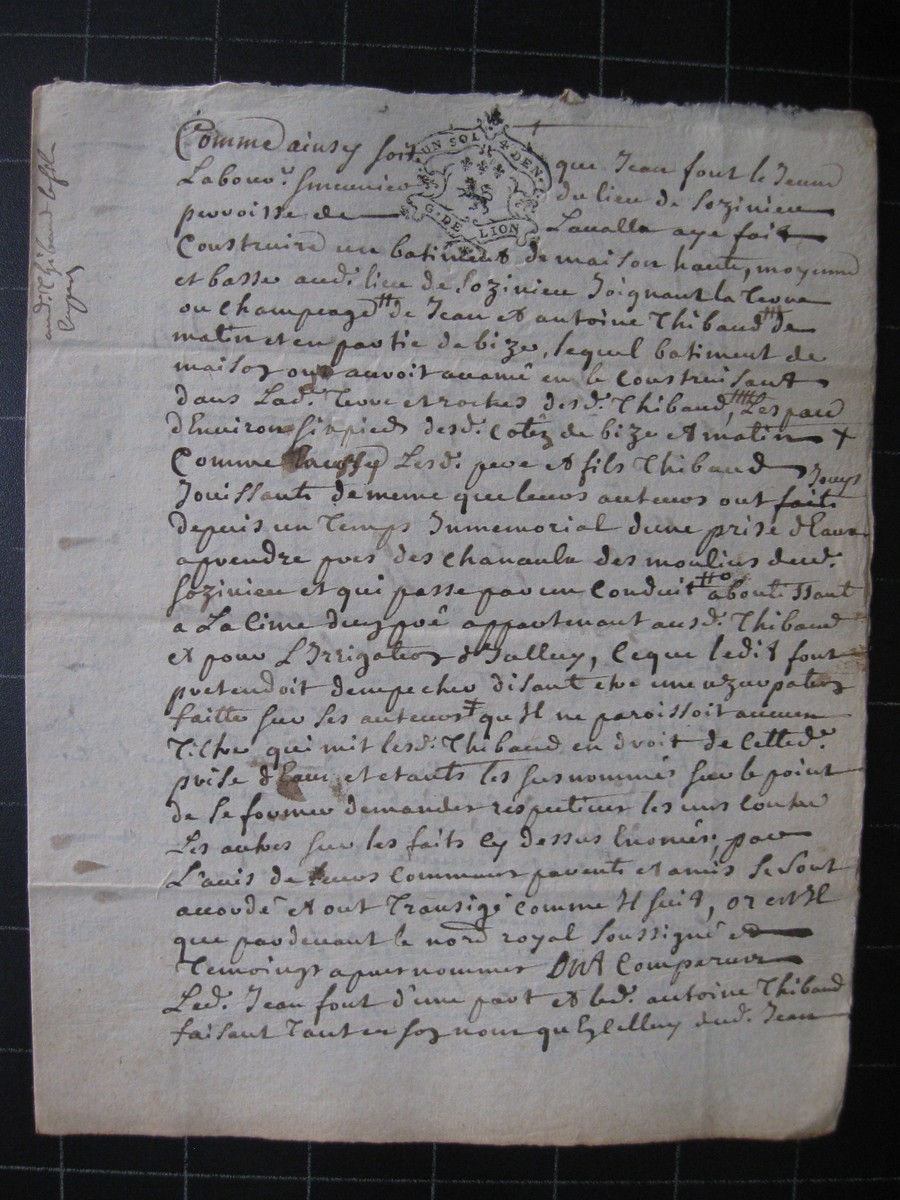 Comme ainsy soit que Jean font le Jeune
Labour.r du lieu de Sozinieu
parroisse de Lavalla aye fait
UN SOL DEN.
G. DE LION
Construire un batiment de maison haute, moyenne
et basse aud. lieu de Sozinieu Joignant la Terre
ou champeage de Jean et antoine Thibaud de
matin et en partie de bize, lequel batiment de
maison on auroit avancé en le Construisant
dans Lad. Terre et roches desd. Thibaud, Lespace
d'Environ six pieds desd. Cotéz de bize et matin +
Comme aussy Lesd. pere et fils Thibaud
Jouissants de meme que leurs auteurs ont faits Jouys
depuis un Temps Inmemorial d'une prise d'Eaux
aprendre pres des chanaula des moulins dud.
Sozinieu et qui passe par un Conduit aboutissant
a La Cime d'un pré appartenant ausd. Thibaud
et pour L'Irrigation d'Jcelluy, Ceque ledit font
pretendoit d'empecher disant etre une uzurpation
faitte sur ses auteurs + qu'Il ne paroissoit aucun
Titre qui mit lesd. Thibaud en droit de Cetted.
prise d'Eaux et etants les susnommés sur le point
de se former demandes respectives les uns Contre
Les autres sur les faits Cy dessus Enoncés, par
L'avis de Leurs Communs parents et amis se sont
accordé et ont Transigé Comme Il suit, or est Il
que pardevant le no.re royal soussigné et
Temoings apres nommes ont Comparus
Led. Jean font d'une part et led. antoine Thibaud
faisant Tant en son nom qu'En Celluy dud. Jean
aud. Thibaud le fils